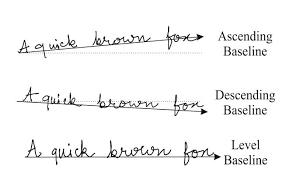 A quick brown fox
Ascending
Baseline
A quick brown fox
Descending
Baseline
A quick brown fox
Level
Baseline